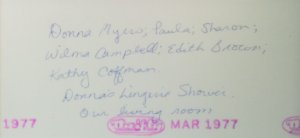 Donna Myers; Paula; Sharon;
Wilma Campbell; Edith Brown;
Kathy Coffman
Donna's Lingerie Shower.
Our living room
1977 MAR 1977